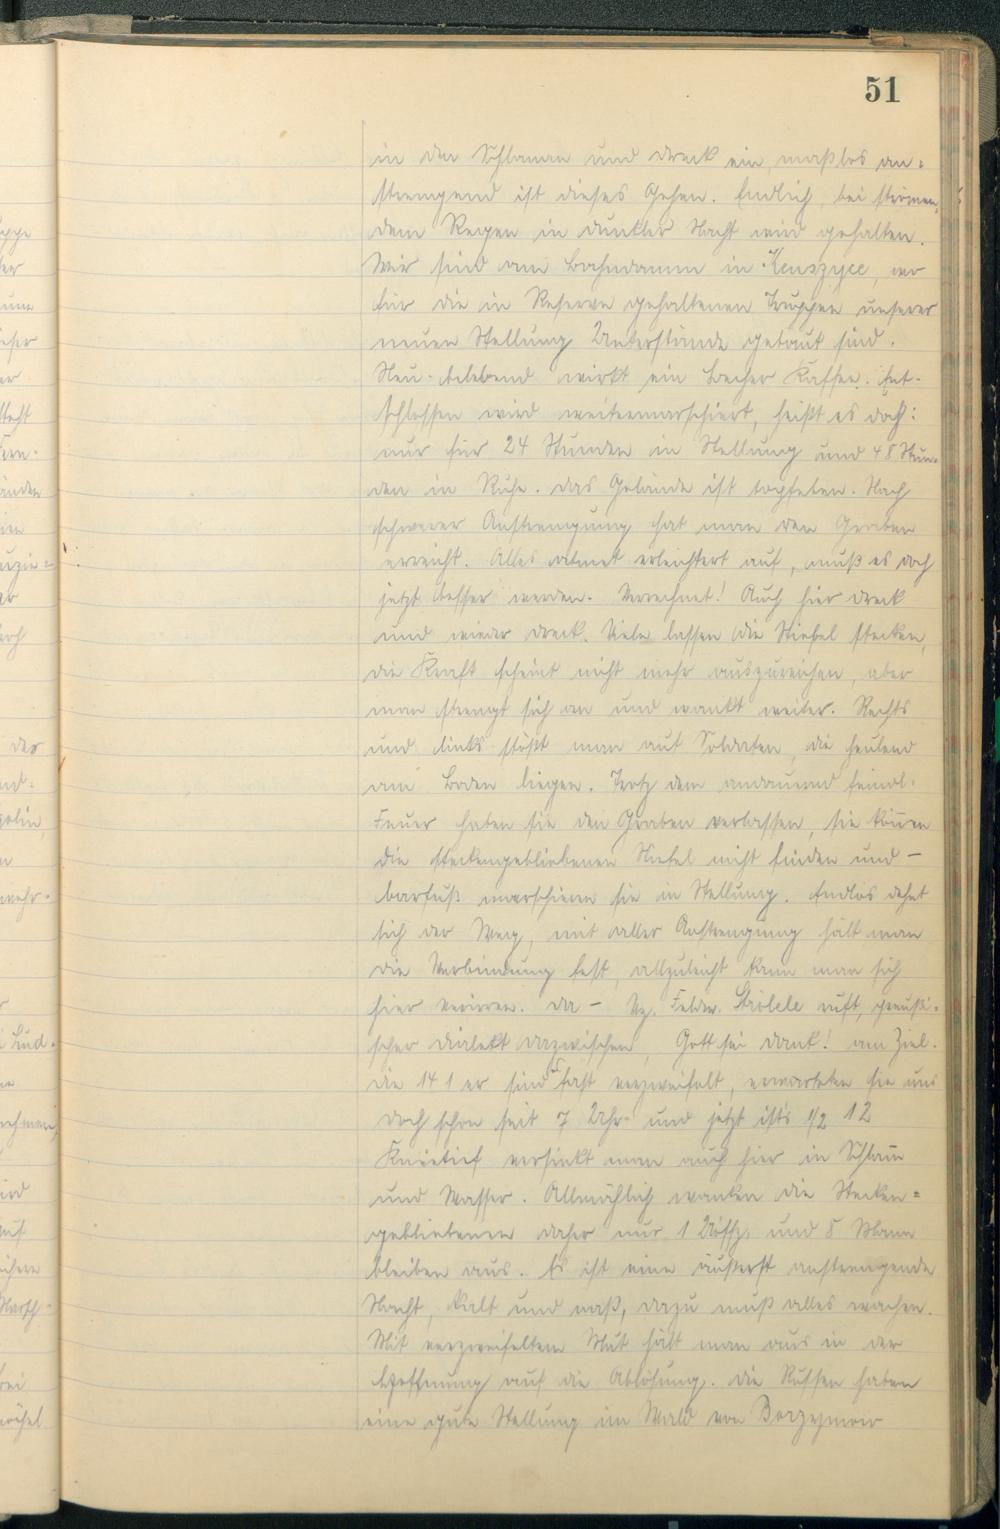 51
in den Schlamm und Dreck ein, maßlos an=
strengend ist dieses Gehen. Endlich, bei strömen=
dem Regen in dunkler Nacht wird gehalten.
Wir sind am Bahndamm in Kenszyce, wo
für die in Reserve gehaltenen Truppen unserer
neuen Stellung Unterstände gebaut sind.
Neu-belebend wirkt ein Becher Kaffee. Ent-
schlossen wird weitermarschiert, heißt es doch:
nur für 24 Stunden in Stellung und 48 Stun-
den in Ruhe. Das Gelände ist topfeben. Nach
schwerer Anstrengung hat man den Graben
erreicht. Alles atmet erleichtert auf, muß es doch
jetzt besser werden. Verrechnet! Auch hier Dreck
und wieder Dreck. Viele lassen die Stiefel stecken,
die Kraft scheint nicht mehr auszureichen, aber
man strengt sich an und wankt weiter. Rechts
und links stößt man auf Soldaten, die heulend
am Boden liegen. Trotz dem andauernd feindl.
Feuer haben sie den Graben verlassen, sie können
die steckengebliebenen Stiefel nicht finden und –
barfuß marschieren sie in Stellung. Endlos dehnt
sich der Weg, mit aller Anstrengung hält man
die Verbindung fest, allzuleicht kann man sich
hier verirren. Da – Vz. Feldw. Ströbele ruft, preußi-
scher Dialekt dazwischen, Gott sei Dank! am Ziel.
Die 141er sind fast verzweifelt, erwarteten sie uns
doch schon seit 7 Uhr und jetzt ist's 1/2 12
Knietief versinkt man auch hier in Schlamm
und Wasser. Allmählich wanken die Stecken=
gebliebenen daher nur 1 Uoffz. und 8 Mann
bleiben aus. Es ist eine äußerst anstrengende
Nacht, kalt und naß, dazu muß alles wachen.
Mit verzweifeltem Mut hält man aus in der
Hoffnung auf die Ablösung. Die Russen haben
eine gute Stellung im Wald von